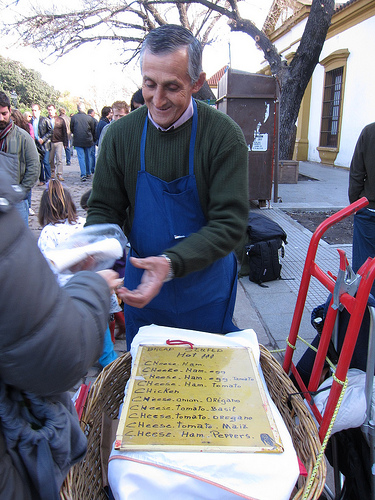 BREAD STUFFED
Hot All
CHeese. Ham.
CHeese. Ham. egg
CHeese. Ham. egg. Tomato
CHeese. Ham. Tomato
CHicken
CHeese. onion. Oregano
CHeese. Tomato. Basil
CHeese. Tomato. Oregano
CHeese. Tomato. Maiz
CHeese. Ham. Peppers.